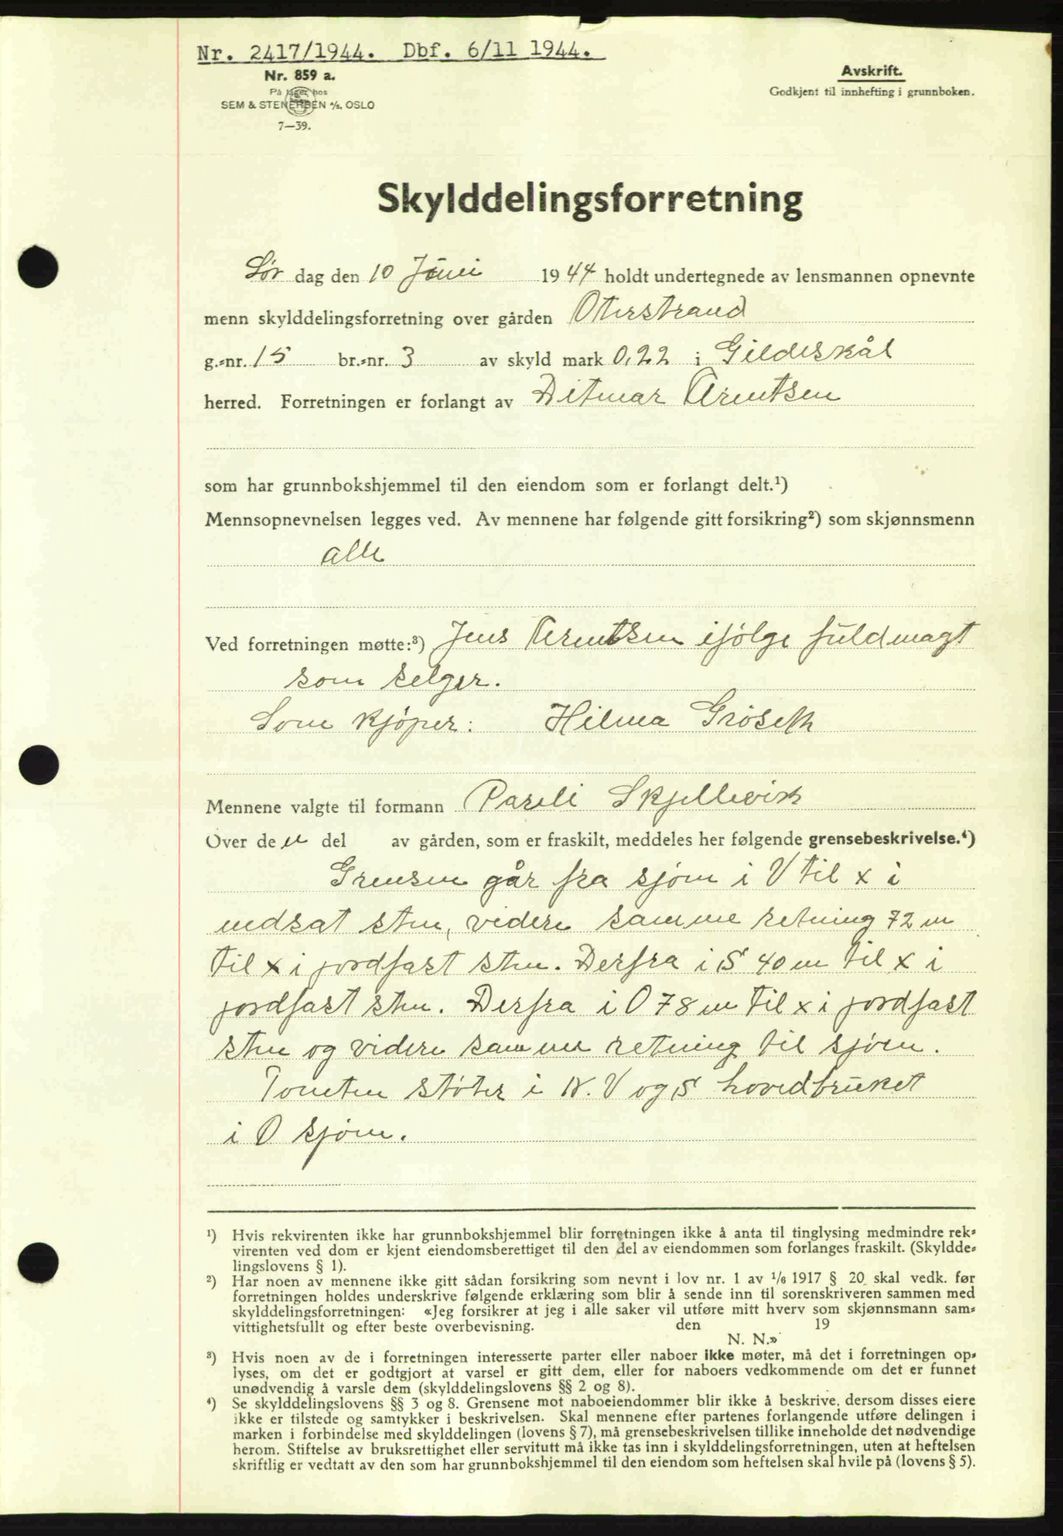 Nr. 2417/1944. Dbf. 6/11 1944.
Nr. 859 a.
På lager hos
SEM & STENERSEN A/S. OSLO
7—39.
Avskrift.
Godkjent til innhefting i grunnboken.
Skylddelingsforretning
Lør dag den 10 Juni 1944 holdt undertegnede av lensmannen opnevnte
menn skylddelingsforretning over gården Oterstrand
g.-nr. 15 br.-nr. 3 av skyld mark 0,22 i Gildeskål
herred. Forretningen er forlangt av Ditmar Arentsen
som har grunnbokshjemmel til den eiendom som er forlangt delt.¹)
Mennsopnevnelsen legges ved. Av mennene har følgende gitt forsikring²) som skjønnsmenn
alle
Ved forretningen møtte:³) Jens Arentsen ifølge fuldmagt
som selger.
Som kjøper: Hilma Grøseth
Mennene valgte til formann Pareli Skjellevik
Over den del av gården, som er fraskilt, meddeles her følgende grensebeskrivelse.⁴)
Grensen går fra sjøen i V til x i
nedsat sten, videre samme retning 72 m
til x i jordfast sten. Derfra i S 40 m til x i
jordfast sten. Derfra i O 78 m til x i jordfast
sten og videre samme retning til sjøen.
Tomten støter i N. V og S hovedbruket
i O sjøen.
¹) Hvis rekvirenten ikke har grunnbokshjemmel blir forretningen ikke å anta til tinglysing medmindre rek-
virenten ved dom er kjent eiendomsberettiget til den del av eiendommen som forlanges fraskilt. (Skyldde-
lingslovens § 1).
²) Har noen av mennene ikke gitt sådan forsikring som nevnt i lov nr. 1 av 1/6 1917 § 20 skal vedk. før
forretningen holdes underskrive følgende erklæring som blir å sende inn til sorenskriveren sammen med
skylddelingsforretningen: «Jeg forsikrer at jeg i alle saker vil utføre mitt hverv som skjønnsmann sam-
vittighetsfullt og efter beste overbevisning. den 19
N. N.»
³) Hvis noen av de i forretningen interesserte parter eller naboer ikke møter, må det i forretningen op-
lyses, om det er godtgjort at varsel er gitt dem, eller for naboers vedkommende om det er funnet
unødvendig å varsle dem (skylddelingslovens §§ 2 og 8).
⁴) Se skylddelingslovens §§ 3 og 8. Grensene mot naboeiendommer blir ikke å beskrive, dersom disses eiere
ikke er tilstede og samtykker i beskrivelsen. Skal mennene efter partenes forlangende utføre delingen i
marken i forbindelse med skylddelingen (lovens § 7), må grensebeskrivelsen tillike inneholde det nødvendige
herom. Stiftelse av bruksrettighet eller servitutt må ikke tas inn i skylddelingsforretningen, uten at heftelsen
skriftlig er vedtatt av den som har grunnbokshjemmel til den eiendom som heftelsen skal hvile på (lovens § 5).